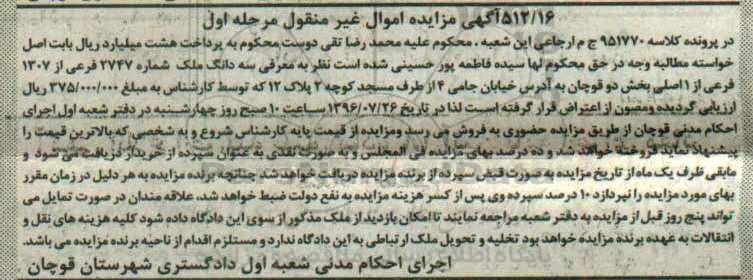 ۵۱۲/۱۶آگهی مزایده اموال غیر منقول مرحله اول
در پرونده کلاسه ۹۵۱۷۷۰ ج م ارجاعی این شعبه ، محکوم علیه محمد رضا تقی دوست محکوم به پرداخت هشت میلیارد ریال بابت اصل
خواسته مطالبه وجه در حق محکوم لها سیده فاطمه پور حسینی شده است نظر به معرفی سه دانگ ملک شماره ۲۷۴۷ فرعی از ۱۳۰۷
فرعی از ۱ اصلی بخش دو قوچان به آدرس خیابان جامی ۴ از طرف مسجد کوچه ۲ پلاک ۱۲ که توسط کارشناس به مبلغ ۳۷۵/۰۰۰/۰۰۰ ریال
ارزیابی گردیده ومصون از اعتراض قرار گرفته است لذا در تاریخ ۱۳۹۶/۰۷/۲۶ ساعت ۱۰ صبح روز چهارشنبه در دفتر شعبه اول اجرای
احکام مدنی قوچان از طریق مزایده حضوری به فروش می رسد ومزایده از قیمت پایه کارشناس شروع و به شخصی که بالاترین قیمت را
پیشنهاد نماید فروخته خواهد شد و ده درصد بهای مزایده فی المجلس و به صورت نقدی به عنوان سپرده از خریدار دریافت می شود و
مابقی ظرف یک ماه از تاریخ مزایده به صورت قبض سپرده از برنده مزایده دریافت خواهد شد چنانچه برنده مزایده به هر دلیل در زمان مقرر
بهای مورد مزایده را نپردازد ۱۰ درصد سپرده وی پس از کسر هزینه مزایده به نفع دولت ضبط خواهد شد. علاقه مندان در صورت تمایل می
تواند پنج روز قبل از مزایده به دفتر شعبه مراجعه نمایند تا امکان بازدید از ملک مذکور از سوی این دادگاه داده شود کلیه هزینه های نقل و
انتقالات به عهده برنده مزایده خواهد بود تخلیه و تحویل ملک ارتباطی به این دادگاه ندارد و مستلزم اقدام از ناحیه برنده مزایده می باشد.
اجرای احکام مدنی شعبه اول دادگستری شهرستان قوچان